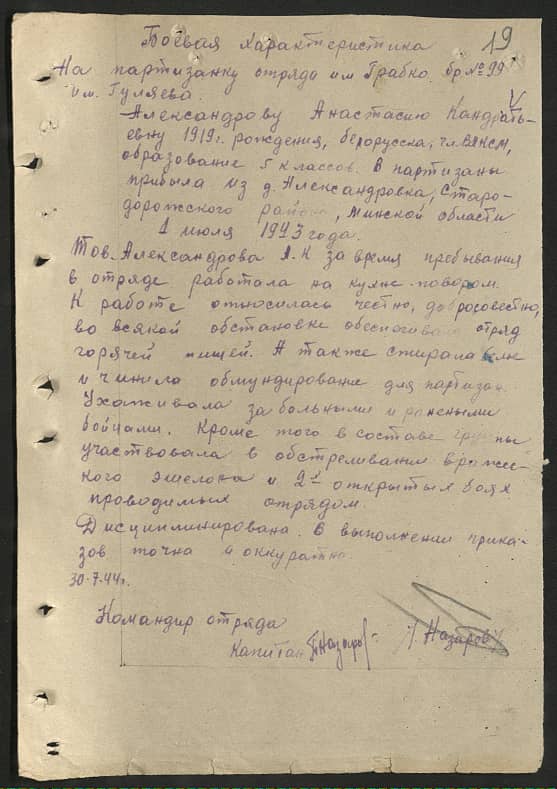 19
Боевая характеристика
На партизанку отряда им Грабко бр № 99
им. Гуляева.
Александрову Анастасию Кандрать-
евну 1919 г. рождения, белорусска, чл. ВЛКСМ,
образование 5 классов. В партизаны
прибыла из д. Александровка, Старо-
дорожского района, Минской области
1 июля 1943 года.
Тов. Александрова А. К за время пребывания
в отряде работала на кухне поваром.
К работе относилась честно, добросовестно,
во всякой обстановке обеспечивала отряд
горячей пищей. А также стирала белье
и чинила обмундирование для партизан.
Ухаживала за больными и ранеными
бойцами. Кроме того в составе группы
участвовала в обстреливании враже-
кого эшелона и 2х открытых боях
проводимых отрядом.
Дисциплинирована. В выполнении прика-
зов точна и аккуратна.
30.7.44 г.
Командир отряда
Капитан ПНазаров /Назаров/